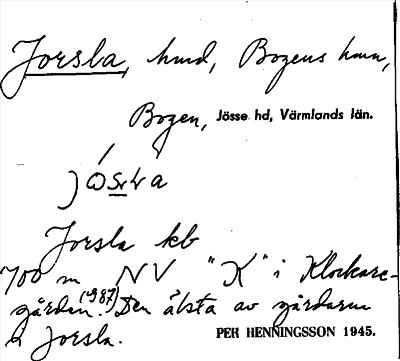 Jorsla, hmd, Bogens hmn,
Bogen, Jösse hd, Värmlands län.
Jorsla kb
700 m NV "K" i Klockare-
gården. (987) Den älsta av gårdarna
i Jorsla.
PER HENNINGSSON 1945.